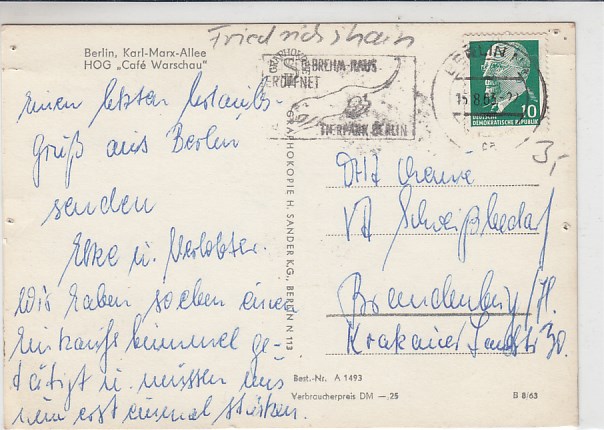 Friedrichshain
Berlin, Karl-Marx-Allee
HOG „Café Warschau"
BREHM-HAUS
ERÖFFNET
TIERPARK BERLIN
BERLIN
15.8.63
10
DEUTSCHE
DEMOKRATISCHE REPUBLIK
3,-
Einen letzten Urlaubs-
Gruß aus Berlin
senden
Elke u. Verlobter.
Wir haben soeben einen
Einkaufsbummel ge-
tätigt u. müssen uns
nun erst einmal stärken.
GRAPHOKOPIE H. SANDER K.G., BERLIN N 113
DHZ Chemie
VA Schweißbedarf
Brandenburg/H.
Krakauer Landstr 30.
Best.-Nr. A 1493
Verbraucherpreis DM —,25
B 8/63